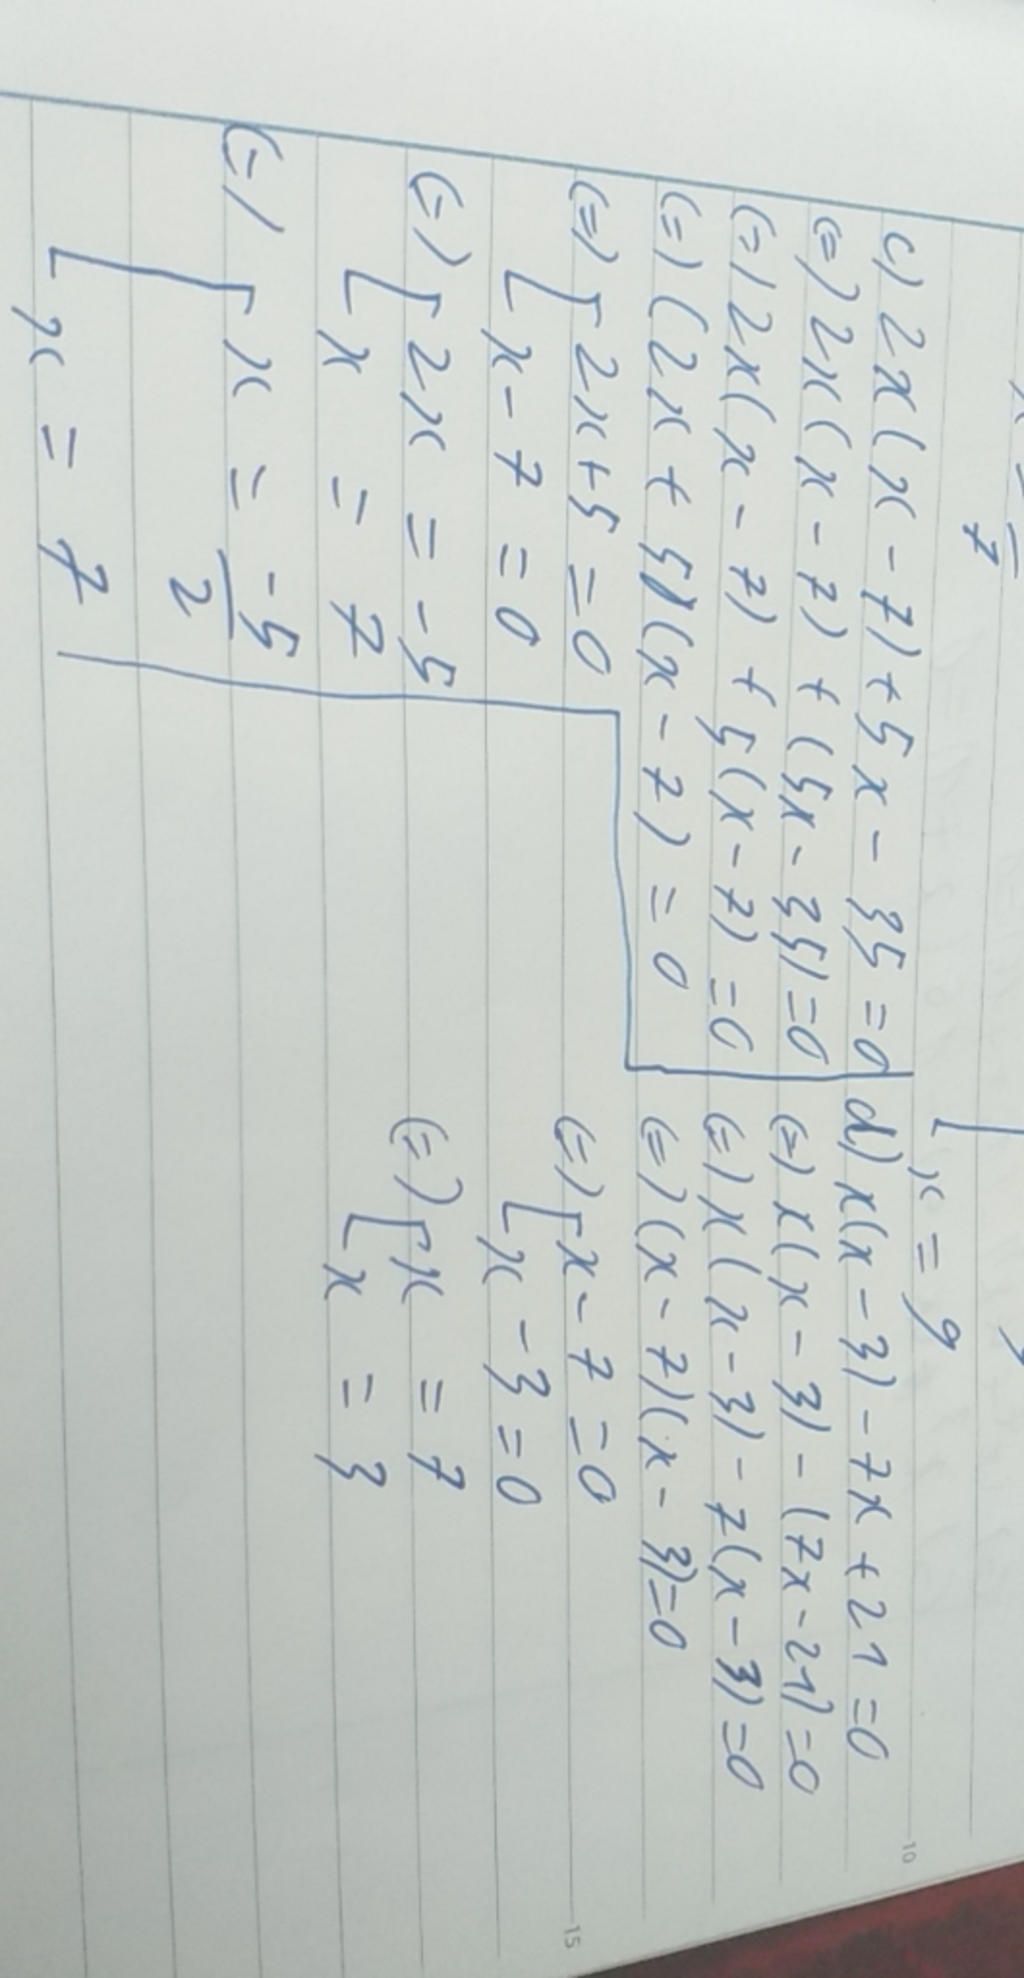 x = 9
c) 2x(x - 7) + 5x - 35 = 0
(=) 2x(x - 7) + (5x - 35) = 0
(=) 2x(x - 7) + 5(x - 7) = 0
(=) (2x + 5)(x - 7) = 0
(=) [ 2x + 5 = 0
[ x - 7 = 0
(=) [ 2x = -5
[ x = 7
(=) [ x = -5/2
[ x = 7
d) x(x - 3) - 7x + 21 = 0
(=) x(x - 3) - (7x - 21) = 0
(=) x(x - 3) - 7(x - 3) = 0
(=) (x - 7)(x - 3) = 0
(=) [ x - 7 = 0
[ x - 3 = 0
(=) [ x = 7
[ x = 3
10
15